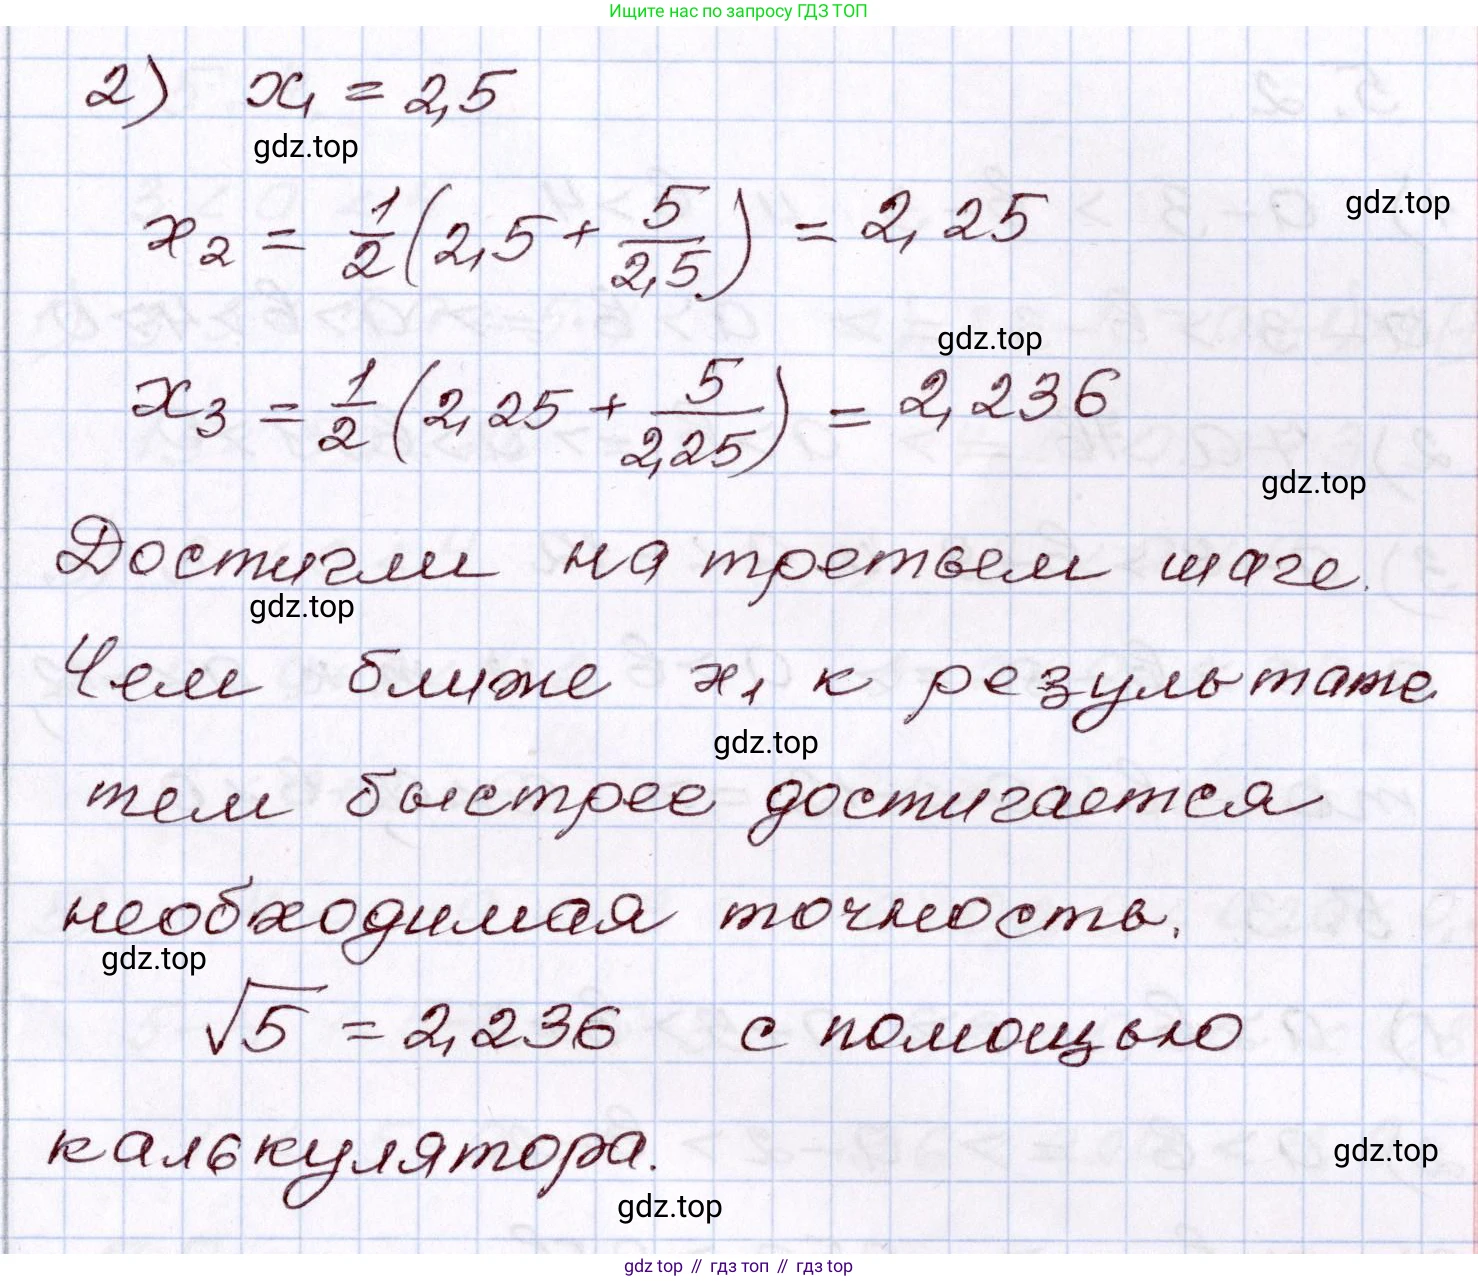 Ищите нас по запросу ГДЗ ТОП
2) x₁ = 2,5
gdz.top
gdz.top
x₂ = 1/2 (2,5 + 5/2,5) = 2,25
gdz.top
x₃ = 1/2 (2,25 + 5/2,25) = 2,236
gdz.top
Достигли на третьем шаге.
gdz.top
Чем ближе x₁ к результате
gdz.top
тем быстрее достигается
необходимая точность.
gdz.top
√5 = 2,236 с помощью
калькулятора.
gdz.top
gdz.top
gdz top // гдз топ // гдз top